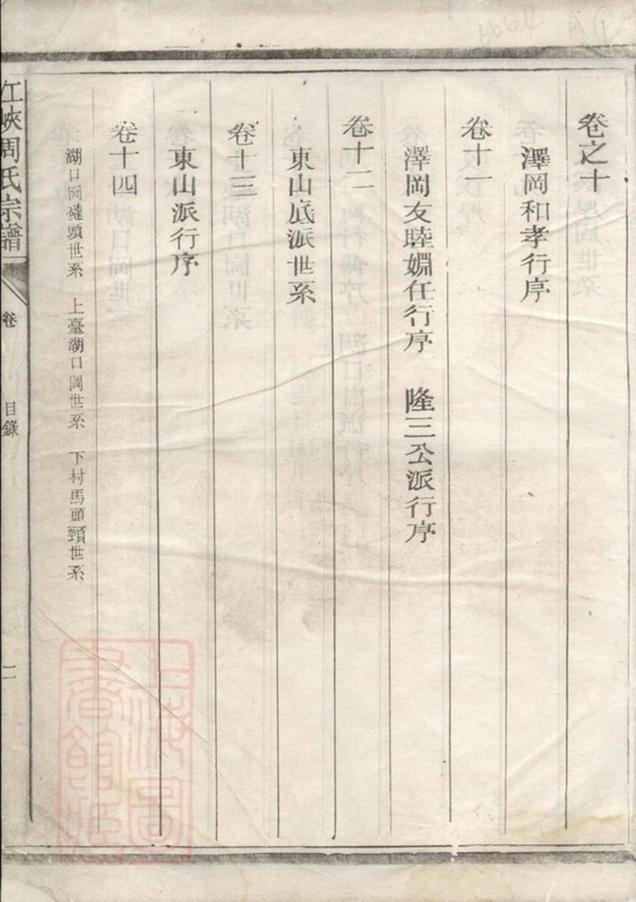 卷之十
澤岡和孝行序
卷十一
澤岡友睦婣任行序 隆三公派行序
卷十二
東山底派世系
卷十三
東山派行序
卷十四
湖口岡磓頭世系 上臺湖口岡世系 下村馬頭頸世系
江峽周氏宗譜
卷 目錄
二